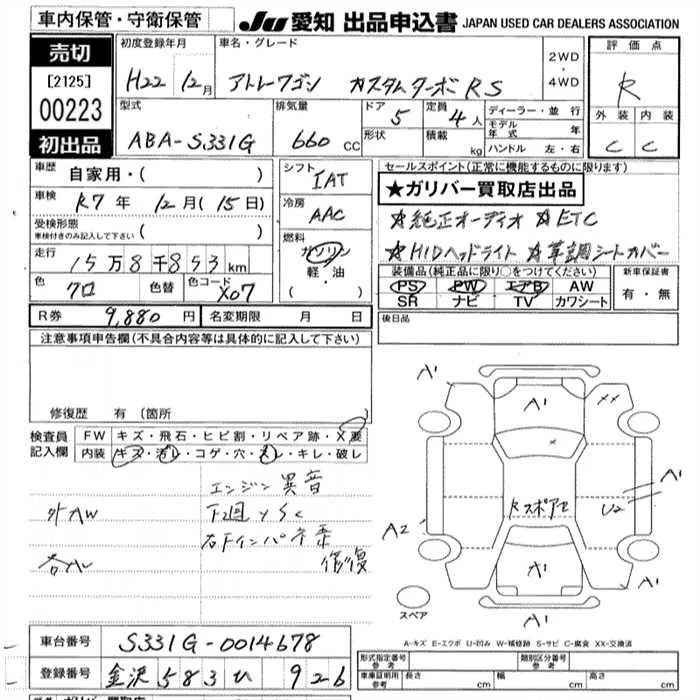 車内保管・守衛保管
JU 愛知 出品申込書 JAPAN USED CAR DEALERS ASSOCIATION
売切
[2125]
00223
初出品
初度登録年月
H22年 12月
車名・グレード
アトレーワゴン カスタムターボRS
2WD
・
4WD
評価点
R
外装 内装
C C
型式
ABA-S331G
排気量
660 CC
ドア
5
形状
定員
4人
積載
kg
ディーラー・並行
モデル年式 年
ハンドル 左・右
車歴
自家用・( )
車検
R7年 12月(15日)
受検形態
車検付きのみ記入して下さい
走行
15万8千853km
色
クロ
色替
色コード
X07
シフト
IAT
冷房
AAC
燃料
ガソリン
軽・油
・
セールスポイント(正常に機能するものに限ります)
★ガリバー買取店出品
☆純正オーディオ ☆ETC
☆HIDヘッドライト ☆革調シートカバー
装備品(純正品に限り○をつけてください)
PS PW エアB AW
SR ナビ TV カワシート
新車保証書
有・無
R券 9,880円
名変期限 月 日
後日品
注意事項申告欄(不具合内容等は具体的に記入して下さい)
修復歴 有(箇所 )
検査員
記入欄
FW キズ・飛石・ヒビ割・リペア跡・X要
内装 キズ・汚レ・コゲ・穴・スレ・キレ・破レ
エンジン異音
外AW 下廻りSC
右Fインパネ葉
修復
A1
A1
XX
A1
A2
Rスポアセ
U2
A1
A1
A1
スペア
A-キズ E-エクボ U-凹み W-補修跡 S-サビ C-腐食 XX-交換済
車台番号 S331G-0014678
登録番号 金沢 583 ひ 926
形式指定番号
参考
類別区分番号
参考
車庫証明用
参考
長さ cm
幅 cm
高さ cm